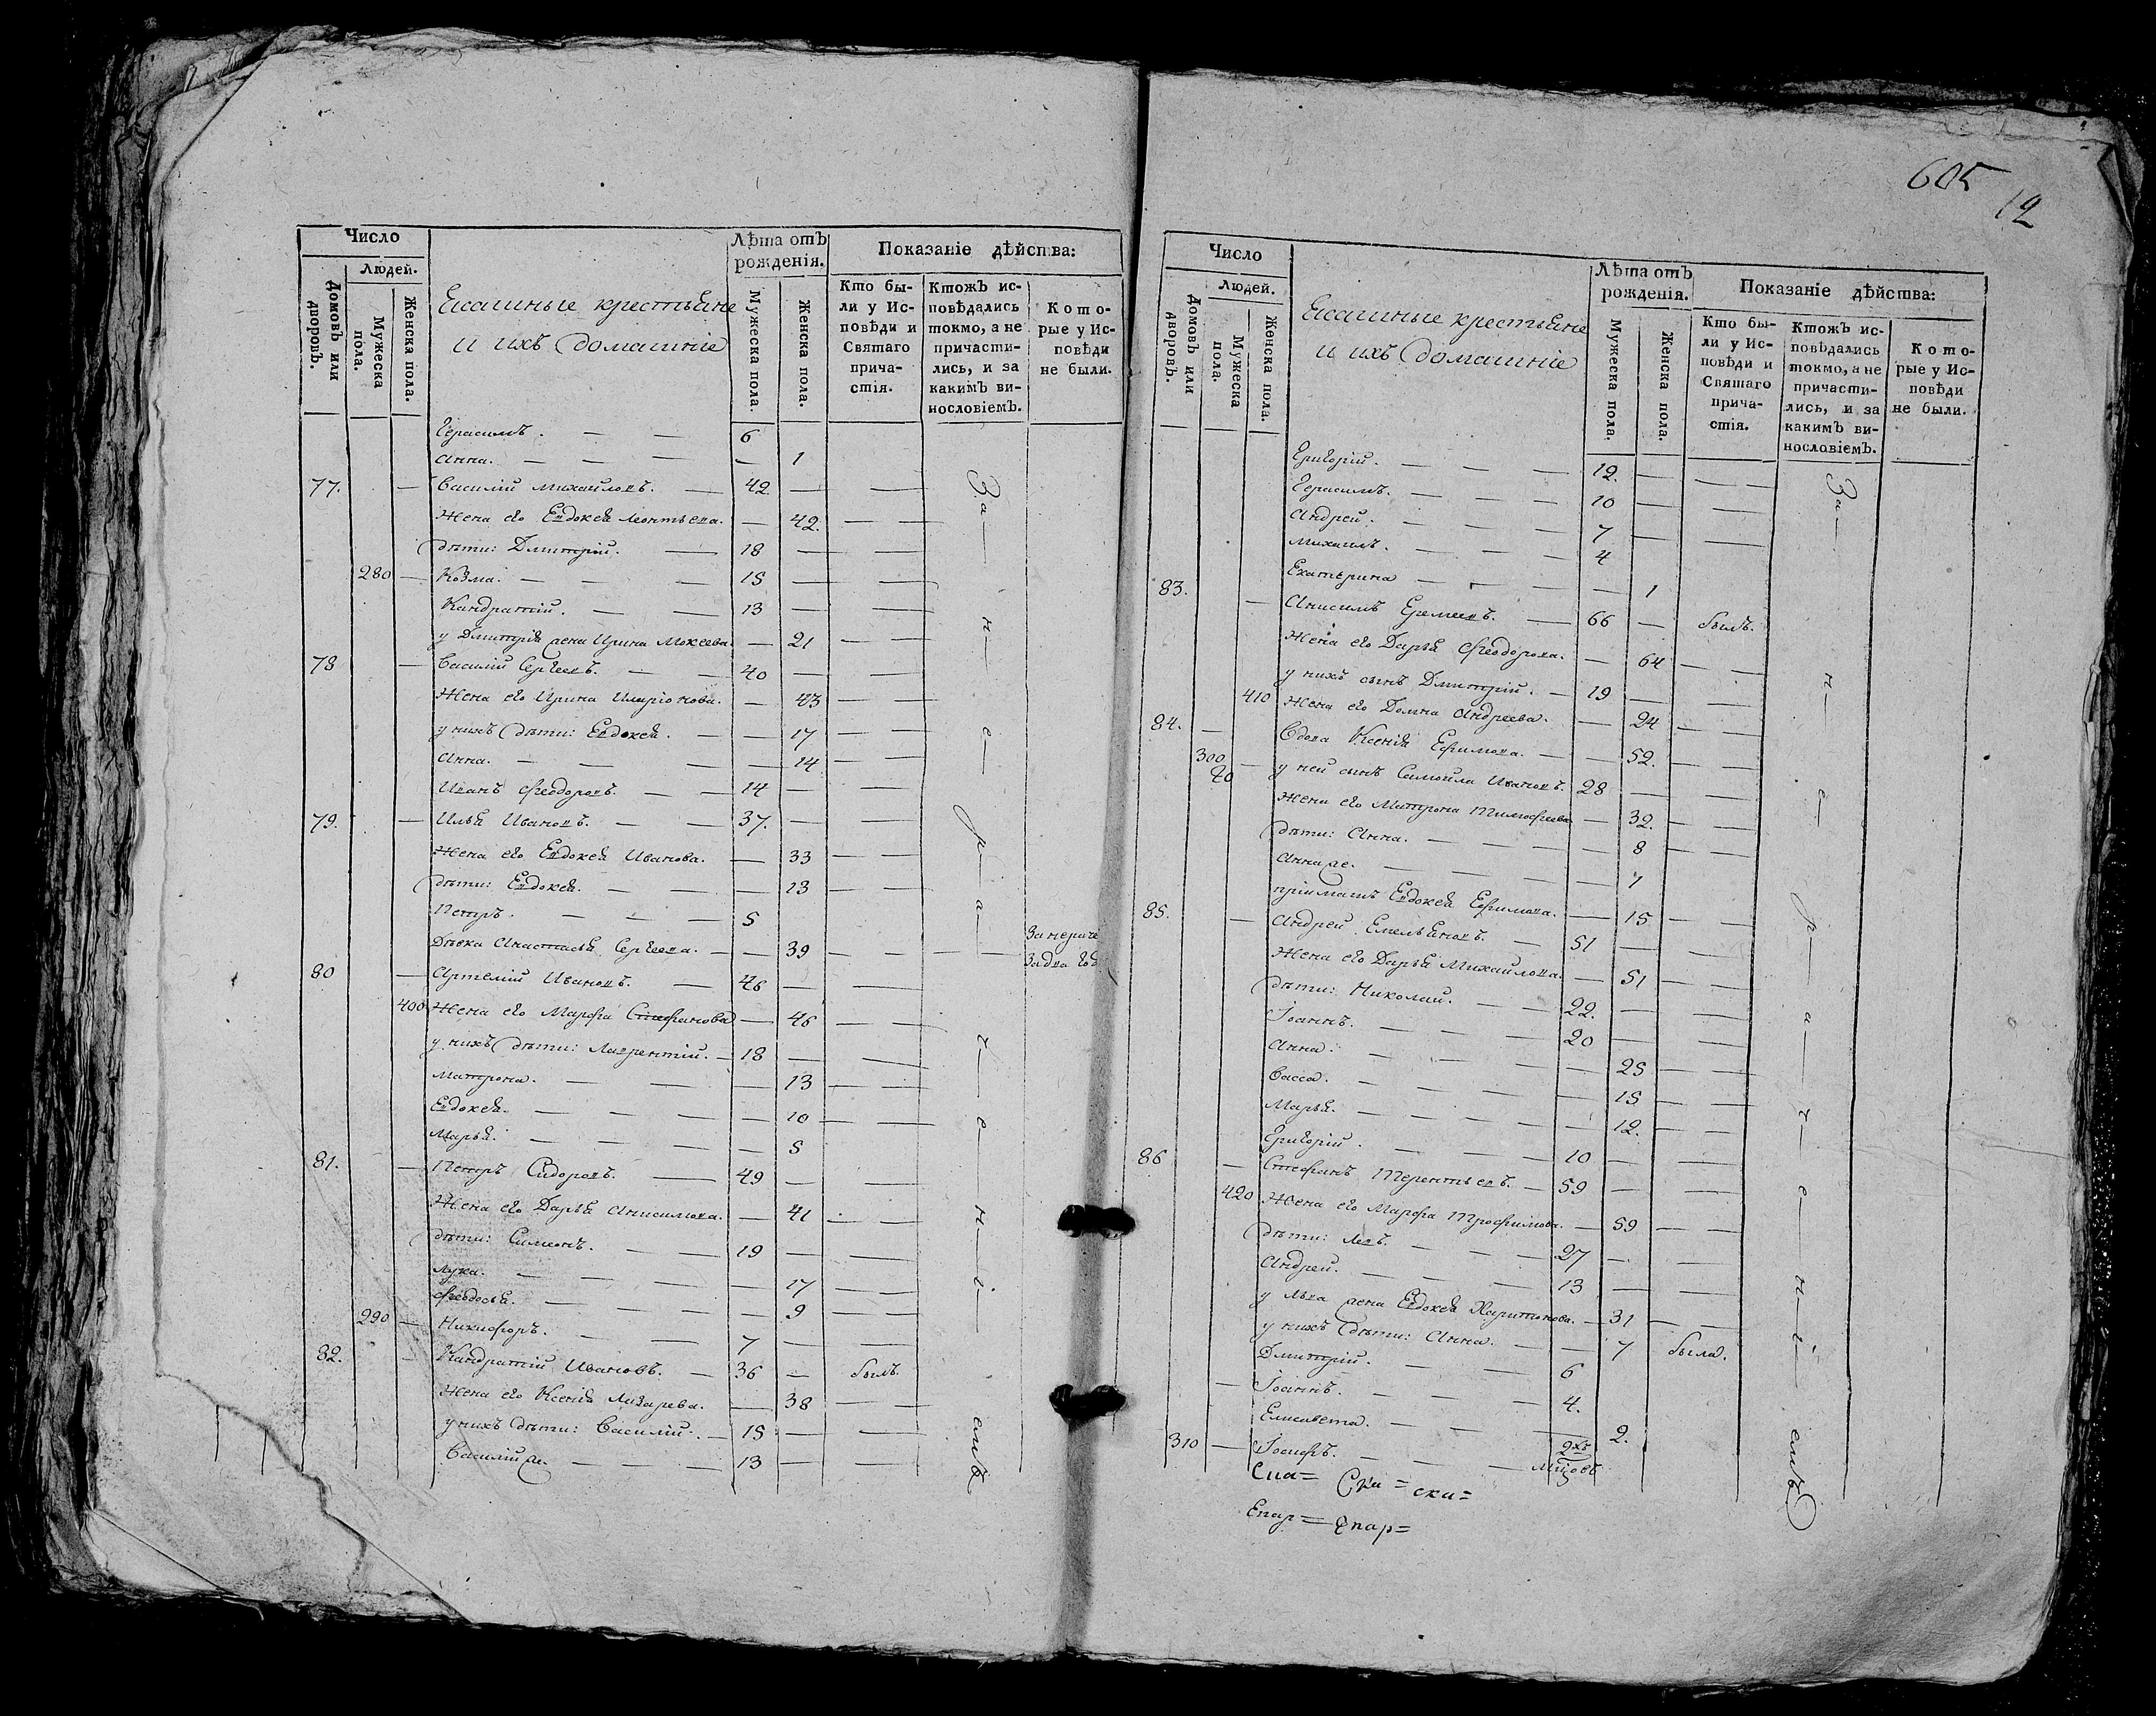 605
12
Число
Людей.
Домовъ или дворовъ.
Мужеска пола.
Женска пола.
Ясашные крестьяне
и ихъ домашніе
Лѣта отъ рожденія.
Мужеска пола.
Женска пола.
Показаніе дѣйства:
Кто были у Исповѣди и Святаго причастія.
Ктожъ исповѣдались токмо, а не причастились, и за какимъ винословіемъ.
Которые у Исповѣди не были.
Герасимъ. 6
Анна. 1
77. Василій Михайловъ. 42
Жена его Евдокея Леонтьева. 42.
дѣти: Дмитрій. 18
280 Козма. 15
Кандратій. 13
у Дмитрія жена Ирина Мокеева. 21
78 Василій Сергеевъ. 40
Жена его Ирина Иларіонова. 43
у нихъ дѣти: Евдокея. 17
Анна. 14
Иванъ Феодоровъ. 14
79. Илья Ивановъ. 37.
Жена его Евдокея Иванова. 33
дѣти: Евдокея. 13
Петръ. 5
Дѣвка Анастасья Сергеева. 39
80 Артемій Ивановъ. 46
400 Жена его Марфа Стефанова 46
у нихъ дѣти: Лаврентій. 18
Матрона. 13
Евдокея. 10
Марья. 5
81. Петръ Сидоровъ. 49
Жена его Дарья Анисимова. 41
дѣти: Симеонъ. 19
Лука. 17
Феодосья. 9
290 Никифоръ. 7
82. Кандратій Ивановъ. 36 былъ.
Жена его Ксенія Лазарева. 38
у нихъ дѣти: Василій. 15
Василій же. 13
За н е р а ч е н і емъ
Число
Людей.
Домовъ или дворовъ.
Мужеска пола.
Женска пола.
Ясашные крестьяне
и ихъ домашніе
Лѣта отъ рожденія.
Мужеска пола.
Женска пола.
Показаніе дѣйства:
Кто были у Исповѣди и Святаго причастія.
Ктожъ исповѣдались токмо, а не причастились, и за какимъ винословіемъ.
Которые у Исповѣди не были.
Григорій. 12.
Герасимъ. 10
Андрей. 7
Михаилъ. 4
Екатерина 1
83. Анисимъ Еремеевъ. 66 былъ.
Жена его Дарья Феодорова. 64
у нихъ сынъ Дмитрій. 19
410 Жена его Домна Андреева. 24
84. Вдова Ксенія Ефимова. 52.
300 у ней сынъ Самойла Ивановъ. 28
Жена его Матрона Тимофеева 32.
дѣти: Анна. 8
Анна же. 1
пріимашъ Евдокея Ефимова. 15
85. Андрей Емельяновъ. 51
Жена его Дарья Михайлова. 51
дѣти: Николай. 22.
Іоаннъ. 20
Анна. 25
Васса. 15
Марья. 12.
Григорій. 10
86 Стефанъ Терентьевъ. 59
420 Жена его Марфа Трофимова. 59
дѣти: Левъ. 27
Андрей. 13
у Льва жена Евдокея Харитонова. 31
у нихъ дѣти: Анна. 7 была.
Дмитрій. 6
Іоаннъ. 4.
Елисавета. 2.
310 Іосифъ. 2хъ
За н е р а ч е н і емъ